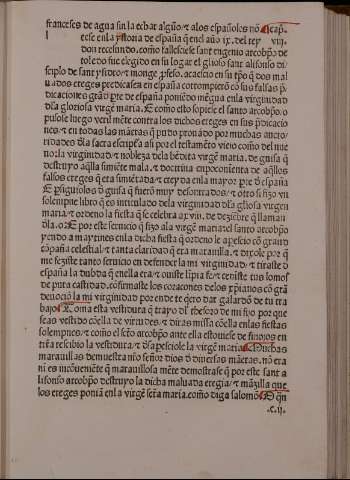 franceses de agua sin la echar algũo ⁊ alos españoles nõ. Cap.
l eese enla ystoria de españa q̃ enel año ix. del rey viij.
don recesundo. como fallesciese sant eugenio arcobpõ de
toledo fue elegido en su logar el glioso sant alifonso di-
sciplo de sant ysidro ⁊ monge p̃feso. acaescio en su tp̃o q̃ dos mal
uados ereges predicasen en españa ⁊ corrompierõ cõ sus falsas p̃
dicaciones grãd p̃te de españa poniẽdo mẽgua enla virginidad
dla gloriosa virgẽ maria. E como esto sopiese el santo arcobpõ. o
pusose luego contra los dichos ereges en sus p̃dicacio
nes. ⁊ en todas las mãeras q̃ pudo prouãdo por muchas aucto-
ridades dla sacra escrip̃a asi por el testamẽto viejo como del nue
uo: la virginidad ⁊ nobleza dela bẽdita virgẽ maria. de guisa q̃
destruyo aq̃lla simiẽte mala. ⁊ doctrina enponçoñenta de aq̃llos
falsos ereges q̃ era simẽtada ⁊ creyda enla mayor p̃te d̃ españa
E p̃siguiolos d̃ guisa q̃ fuerõ muy desonrrados. ⁊ otro si fizo vn
solempne libro q̃ es intitulado dela virginidad dla gliosa virgen
maria. ⁊ ordeno la fiesta q̃ se celebra a xviij. de deziẽbre q̃ llaman
dla. o. E por este seruicio q̃ fizo ala virgẽ maria el santo arcobpõ
yendo a maytines enla dicha fiesta q̃ ordeno le ap̃escio cõ grand
cõpaña celestial. ⁊ tanta claridad q̃ era marauilla. ⁊ dixole por q̃
me feziste tanto seruicio en defender la mi virginidad. ⁊ tiraste d̃
españa la dubda q̃ enella era. ⁊ ouiste lĩpia fe. ⁊ ceñiste tus lomos
de pura castidad. cõfirmaste los coracones delos xp̃ianos cõ grã
deuociõ la mi virginidad por ende te q̃ero dar galardõ de tu tra
bajo. Toma esta vestidura q̃ trayo dl thesoro de mi fijo por que
seas vestido cõella de virtudes. ⁊ diras missa cõella enlas fiestas
solempnes. ⁊ como el scõ arcobpõ ante ella estouiese de finojos en
trã a rescibio la vestidura. ⁊ dsap̃esciole la virgẽ maria. Muchas
marauillas demuestra nr̃o señor dios d̃ diuersas mãeras. nõ era
ni es incõueniẽte q̃ marauillosa mẽte demostrase q̃ por este sant a
lifonso arcobpõ destruyo la dicha maluada eregia. ⁊ mãzilla que
los ereges poniã enla virgẽ scr̃a maria. como diga salomõ. D q̃n
.c.ij.